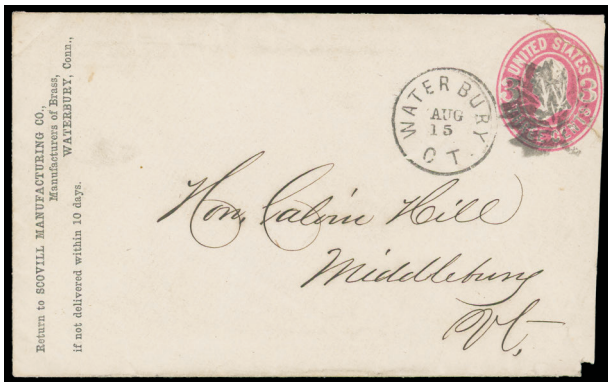 Return to SCOVILL MANUFACTURING CO.,
Manufacturers of Brass,
WATERBURY, Conn.,
if not delivered within 10 days.
WATERBURY
AUG
15
CT.
UNITED STATES
3 3
Hon. Calvin Hill
Middlebury
Vt,